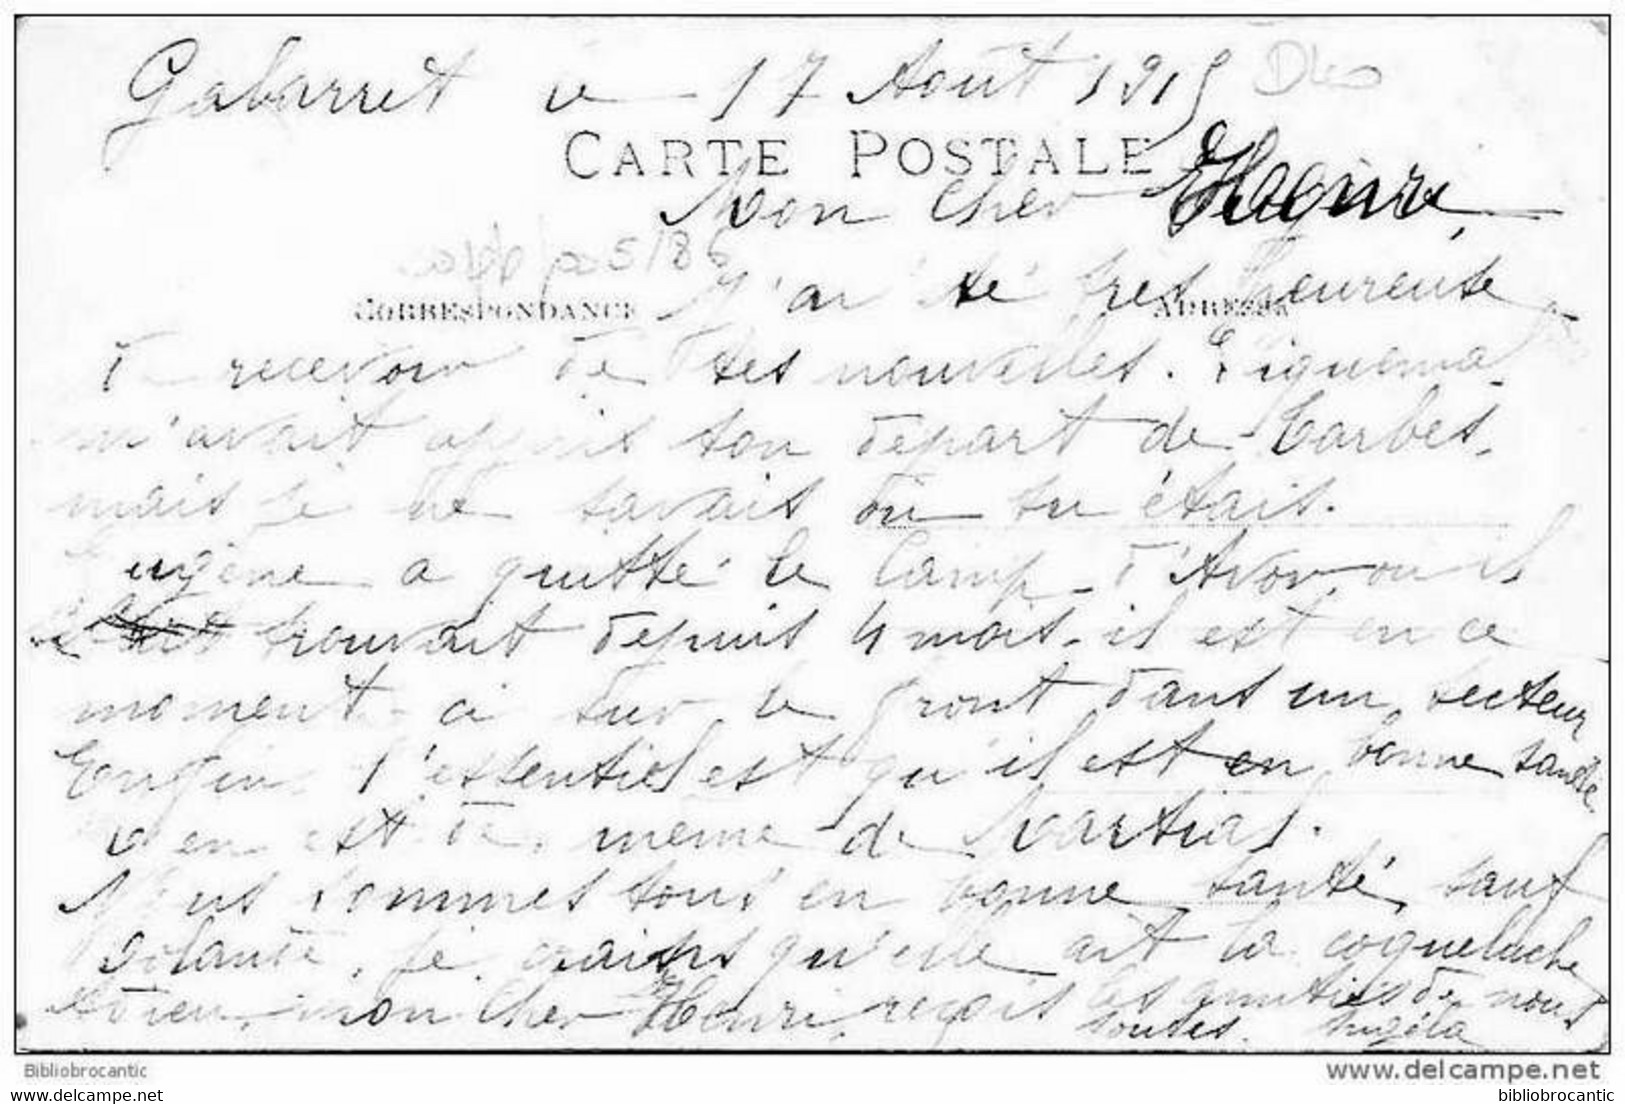 Gabarret le 17 Août 1915
CARTE POSTALE
Mon Cher
CORRESPONDANCE
ADRESSE
J'ai été très heureuse
de recevoir de tes nouvelles.
m'avait appris ton départ de Tarbes.
mais je ne savais où tu étais.
Eugène a quitté le Camp d'Avor, où il
se trouvait depuis 4 mois. il est en ce
moment-ci sur le front dans un secteur
Enfin l'essentiel est qu'il est en bonne santé
il en est de même de Martial.
Nous sommes tous en bonne santé, sauf
Yolande, je crains qu'elle ait la coqueluche
Adieu, mon cher Henri, reçois les amitiés de nous
toutes. Angéla
Bibliobrocantic
www.delcampe.net
www.delcampe.com
bibliobrocantic